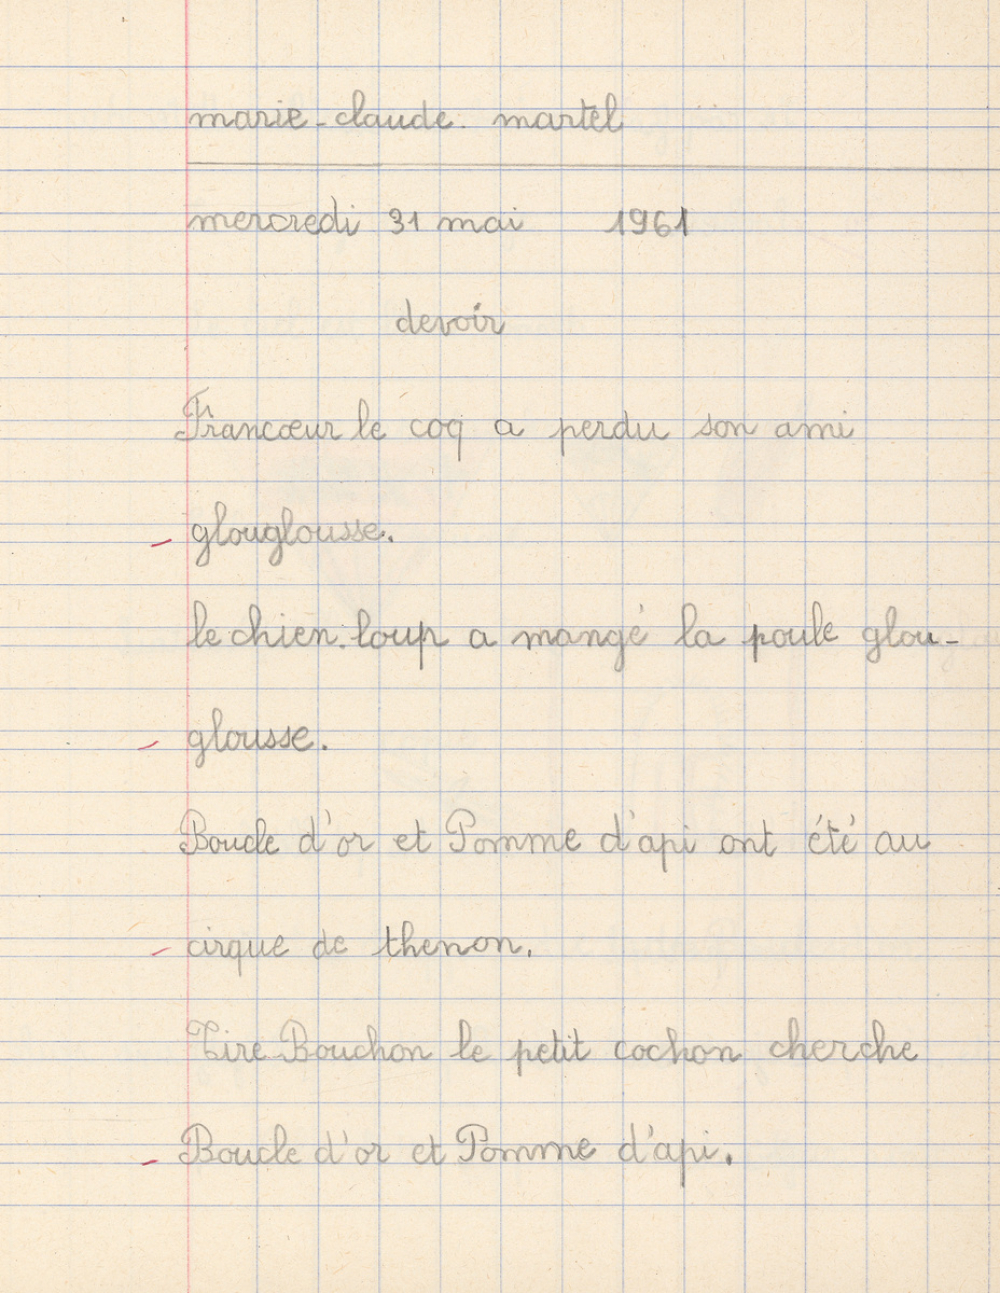 marie-claude. martel
mercredi 31 mai 1961
devoir
Francœur le coq a perdu son ami
glouglousse.
le chien-loup a mangé la poule glou-
glousse.
Boucle d'or et Pomme d'api ont été au
cirque de thenon.
Tire-Bouchon le petit cochon cherche
Boucle d'or et Pomme d'api.